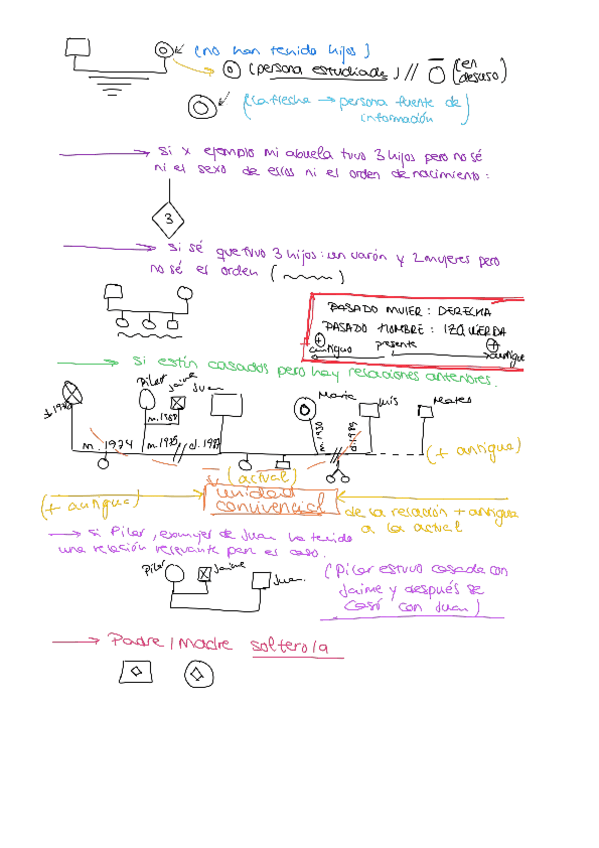 (no han tenido hijos)
(persona estudiada) // (en desuso)
(la flecha → persona fuente de información)
Si x ejemplo mi abuela tuvo 3 hijos pero no sé
ni el sexo de ellos ni el orden de nacimiento:
3
Si sé que tuvo 3 hijos: un varón y 2 mujeres pero
no sé el orden (
)
PASADO MUJER: DERECHA
PASADO HOMBRE: IZQUIERDA
+ antiguo
presente
+ antiguo
Si están casados pero hay relaciones anteriores.
Pilar
Jaime
Juan
María
Luis
Mateo
m. 1974
m. 1985
(+ antigua)
(actual)
unidad
convivencial
(+ antigua)
de la relación + antigua
a la actual
Si Pilar, exmujer de Juan ha tenido
una relación relevante para el caso.
Pilar
Jaime
Juan.
(Pilar estuvo casada con
Jaime y después se
casó con Juan)
Padre / Madre soltero/a